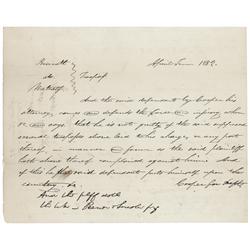 Burnett
vs.
Metcalf
Trespass
April Term 1832.
And the said defendant by Cooper his
attorney, comes and defends the force and injury when
&c and says that he is not guilty of the said supposed
trespasses above laid to his charge, or any part
thereof in manner and form as the said plaintiff
hath above thereof complained against him And of
this he the said defendant puts himself upon the
country &c
Cooper for Deft
And the plff doth
the like